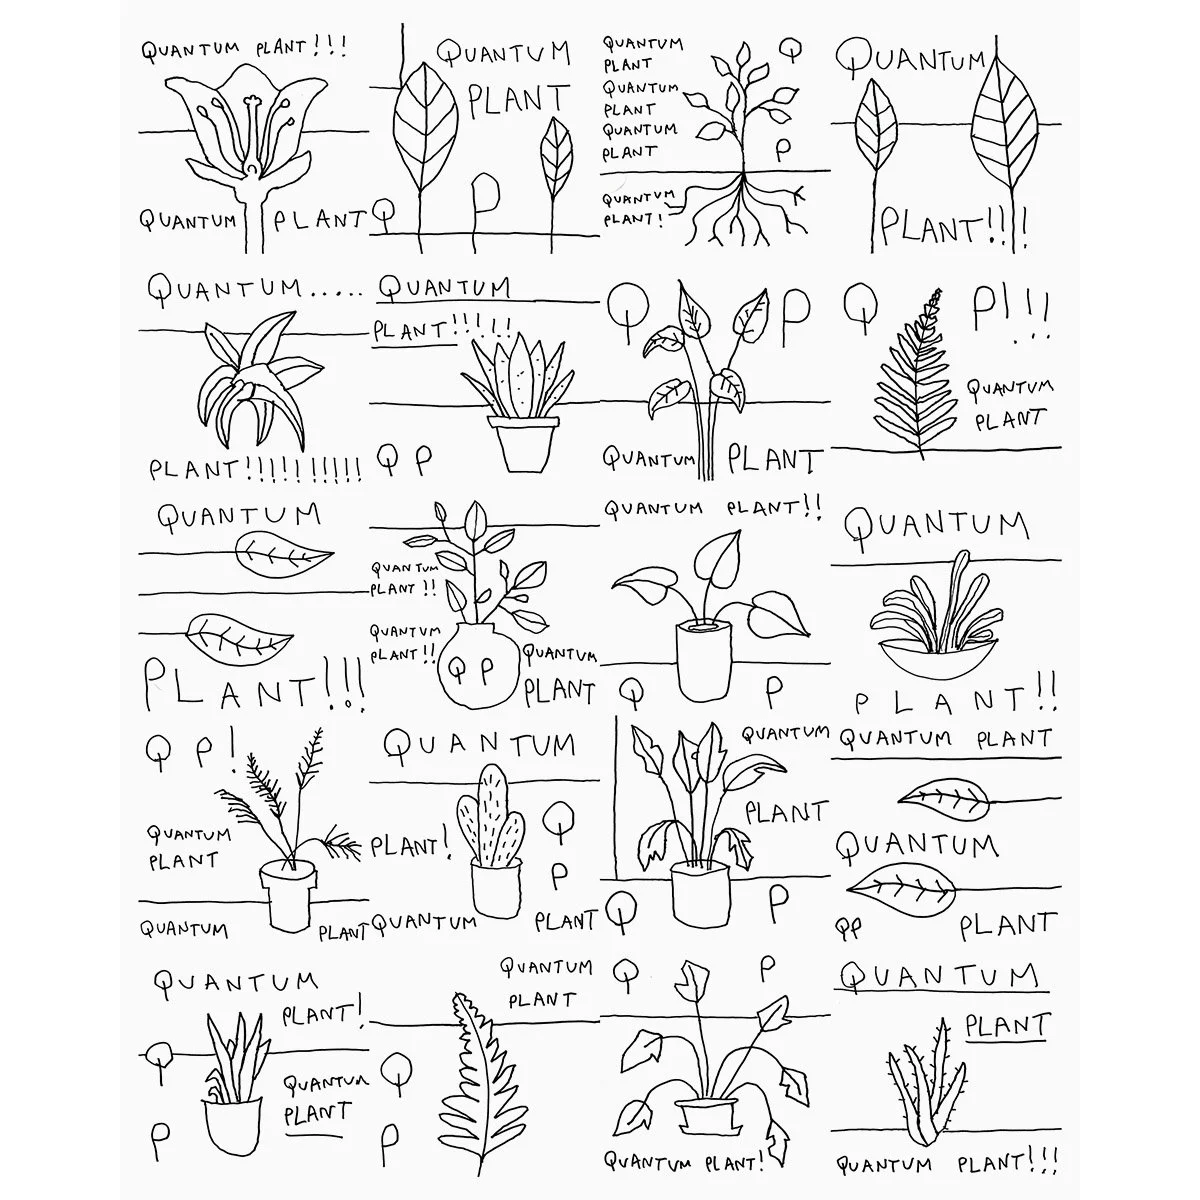 QUANTUM PLANT!!!
QUANTUM PLANT
QUANTUM
PLANT
Q P
QUANTUM
PLANT
QUANTUM
PLANT
QUANTUM
PLANT
QUANTUM
PLANT!
Q
P
QUANTUM
PLANT!!!
QUANTUM.....
PLANT!!!!!!!!!!
QUANTUM
PLANT!!!!!!
Q P
Q P
QUANTUM PLANT
Q P!!!
QUANTUM
PLANT
QUANTUM
PLANT!!!
QUANTUM
PLANT!!
QUANTUM
PLANT!!
Q P
QUANTUM
PLANT
QUANTUM PLANT!!
Q P
QUANTUM
PLANT!!
Q P!
QUANTUM
PLANT
QUANTUM PLANT
QUANTUM
PLANT!
Q
P
QUANTUM PLANT
QUANTUM
PLANT
Q P
QUANTUM PLANT
QUANTUM
QP PLANT
QUANTUM
PLANT!
Q
P
QUANTUM
PLANT
QUANTUM
PLANT
Q
P
Q P
QUANTUM PLANT!
QUANTUM
PLANT
QUANTUM PLANT!!!